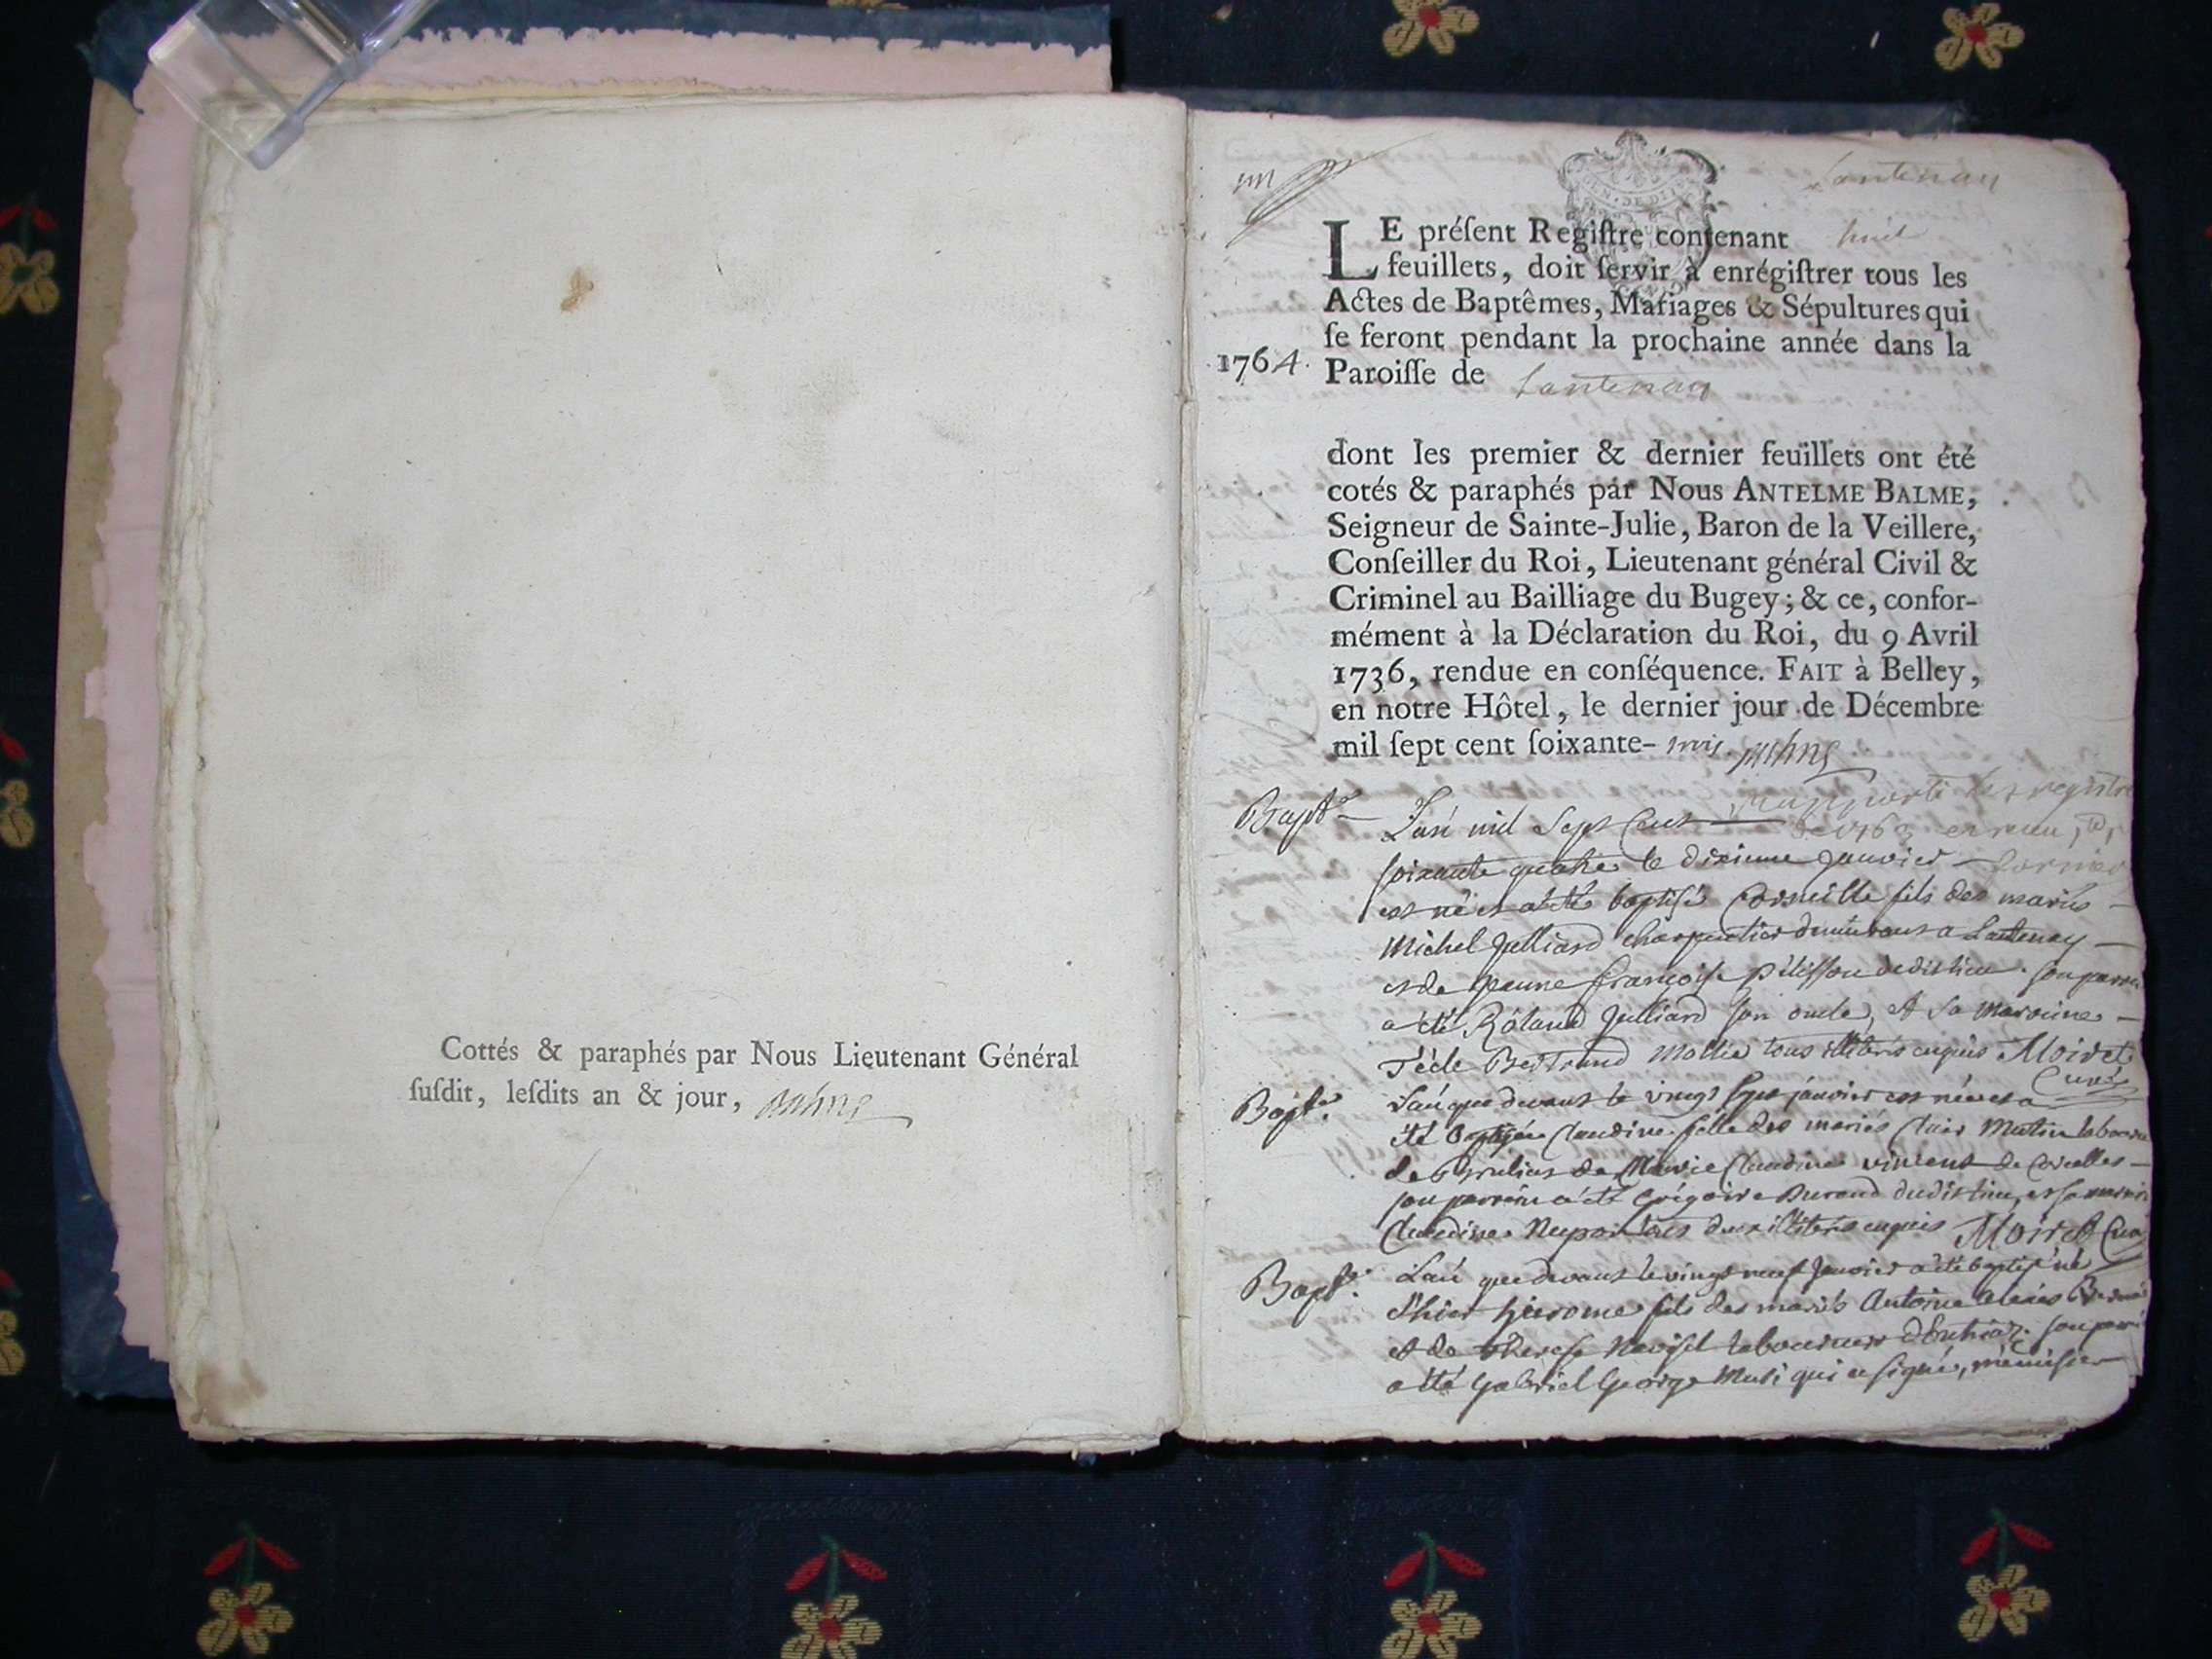 Cottés & paraphés par Nous Lieutenant Général
ſuſdit, leſdits an & jour,
Lantenay
LE préſent Regiſtre contenant huit
feuillets, doit ſervir à enrégiſtrer tous les
Actes de Baptêmes, Mariages & Sépultures qui
ſe feront pendant la prochaine année dans la
1764. Paroiſſe de Lantenay
dont les premier & dernier feuillets ont été
cotés & paraphés par Nous ANTELME BALME,
Seigneur de Sainte-Julie, Baron de la Veillere,
Conſeiller du Roi, Lieutenant général Civil &
Criminel au Bailliage du Bugey; & ce, confor-
mément à la Déclaration du Roi, du 9 Avril
1736, rendue en conſéquence. FAIT à Belley,
en notre Hôtel, le dernier jour de Décembre
mil ſept cent ſoixante- trois.
Bapt. L'an mil Sept Cent
soixante quatre le dixieme janvier
est né et a été baptisé Corneille fils des mariés
Michel Julliard charpentier demeurant a Lantenay
et de jeanne françoise dudit lieu. son parrein
a été Roland Julliard son oncle, et sa Maroine
Bertrand tous illiteris enquis Moiret
Curé
Bapt. L'an que devant le vingt sept janvier est née et a
été Baptisée Claudine fille des mariés Clair laboureur
de et de Marie Claudine vincent de Corcelles
son parrein a été Grégoire Durand dudit lieu, et sa maroine
Claudine tous deux illiteris enquis Moiret Curé
Bapt. L'an que devant le vingt neuf Janvier a été baptisé né
d'hier hierome fils des mariés Antoine Alexis
et de therese laboureur son parrein
a été Gabriel George qui a signé,